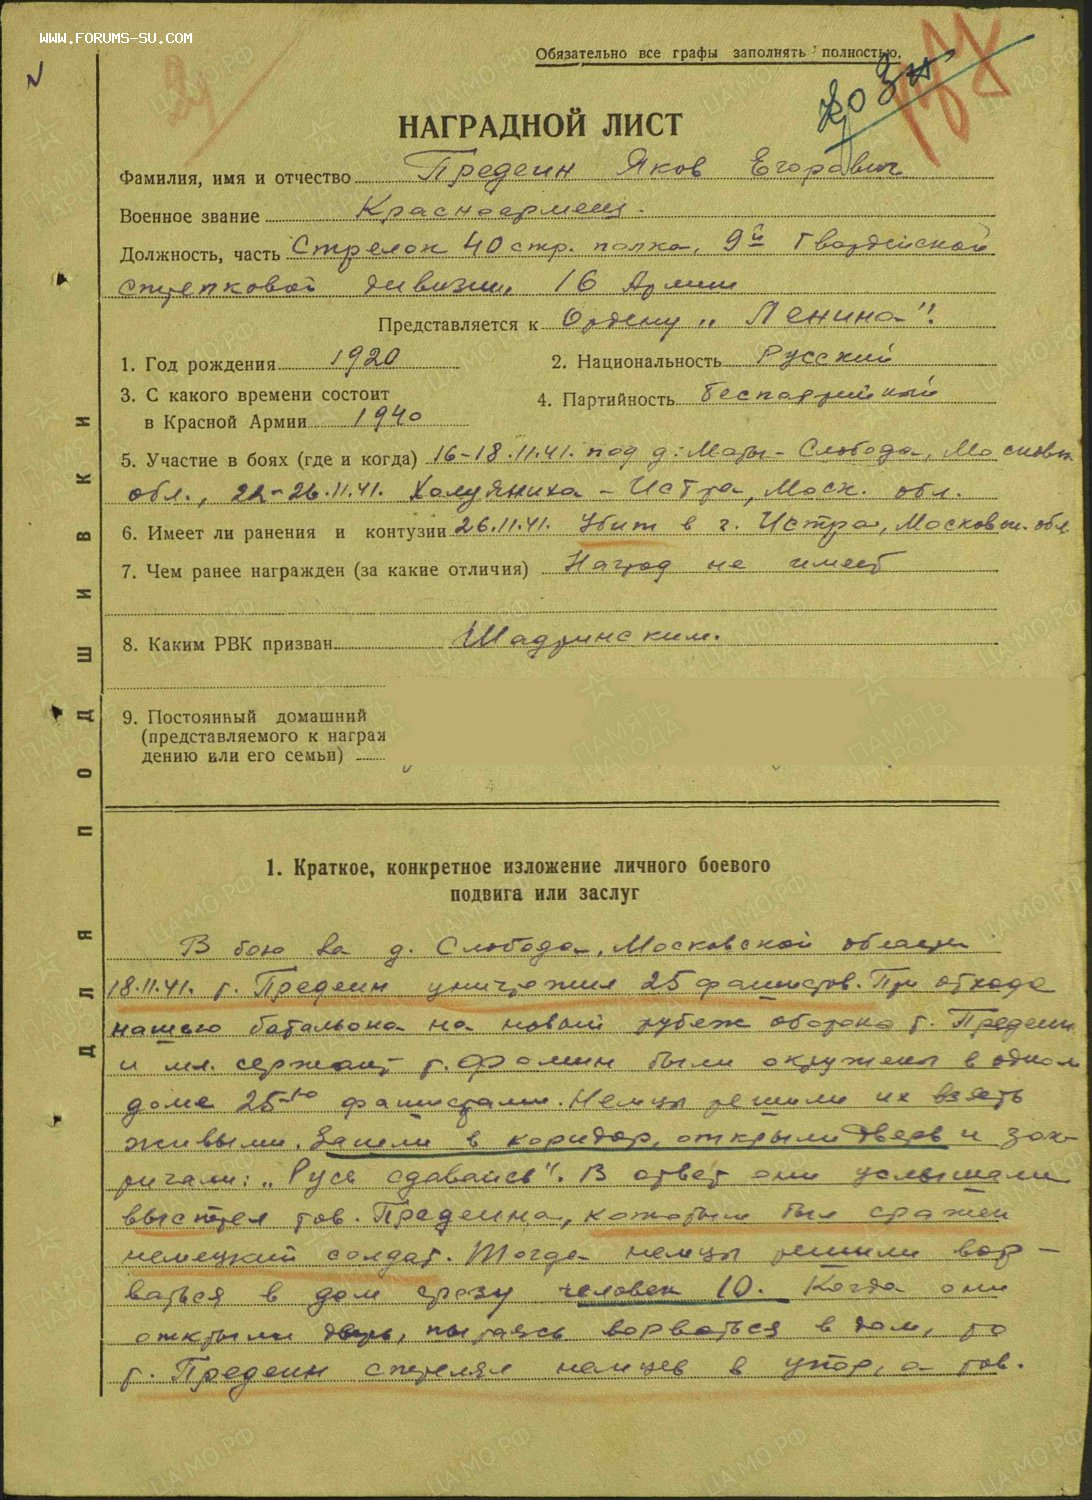 www.forums-su.com
Обязательно все графы заполнять полностью.
НАГРАДНОЙ ЛИСТ
Фамилия, имя и отчество Предеин Яков Егорович
Военное звание Красноармеец.
Должность, часть Стрелок 40 стр. полка, 9й Гвардейской
стрелковой дивизии 16 Армии
Представляется к Ордену „Ленина".
1. Год рождения 1920 2. Национальность Русский
3. С какого времени состоит
в Красной Армии 1940 4. Партийность беспартийный
5. Участие в боях (где и когда) 16-18.11.41. под д: Слобода, Московск
обл., 22-26.11.41. Холуяниха - Истра, Моск. обл.
6. Имеет ли ранения и контузии 26.11.41. Убит в г. Истра, Московск. обл
7. Чем ранее награжден (за какие отличия) Наград не имеет
8. Каким РВК призван Шадринским.
9. Постоянный домашний
(представляемого к награж
дению или его семьи)
ДЛЯ ПОДШИВКИ
1. Краткое, конкретное изложение личного боевого
подвига или заслуг
В бою за д. Слобода, Московской области
18.11.41. т. Предеин уничтожил 25 фашистов. При отходе
нашего батальона на новый рубеж обороны т. Предеин
и мл. сержант т. Фомин были окружены в одном
доме 25-ю фашистами. Немцы решили их взять
живыми. Зашли в коридор, открыли дверь и зак-
ричали: „Русь сдавайсь". В ответ они услышали
выстрел тов. Предеина, которым был сражен
немецкий солдат. Тогда немцы решили вор-
ваться в дом сразу человек 10. Когда они
открыли дверь, пытаясь ворваться в дом, то
т. Предеин стрелял немцев в упор, а тов.